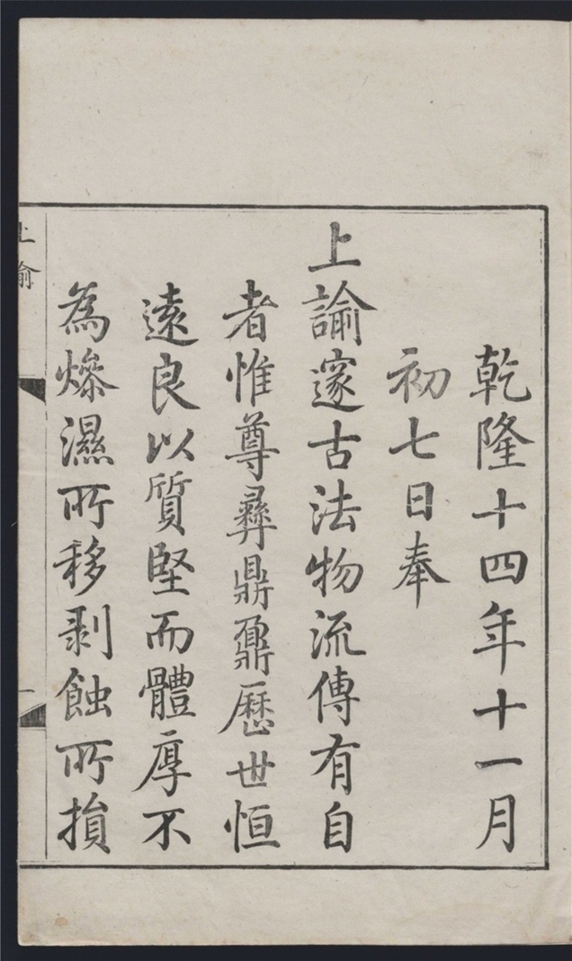 乾隆十四年十一月
初七日奉
上諭邃古法物流傳有自
者惟尊彝鼎鼐歷世恒
遠良以質堅而體厚不
為燥濕所移剥蝕所損
上諭
一